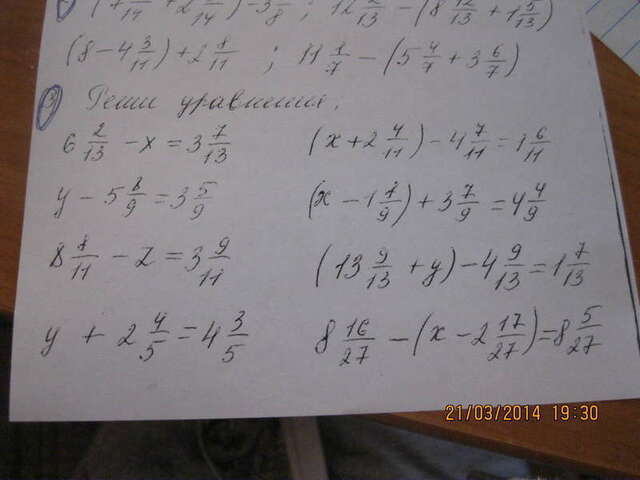 (8 - 4 3/11) + 2 8/11 ; 11 1/7 - (5 4/7 + 3 6/7)
3 Реши уравнения.
6 2/13 - x = 3 7/13 (x + 2 4/11) - 4 7/11 = 1 6/11
y - 5 8/9 = 3 5/9 (x - 1 1/9) + 3 7/9 = 4 4/9
8 1/11 - z = 3 9/11 (13 9/13 + y) - 4 9/13 = 1 7/13
y + 2 4/5 = 4 3/5 8 16/27 - (x - 2 17/27) = 8 5/27
21/03/2014 19:30